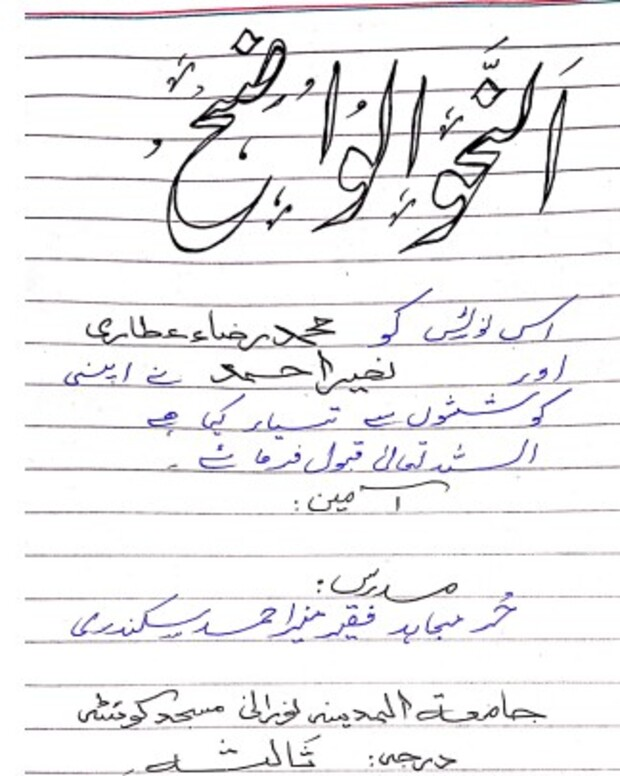 اَلنَّحْوُ الْوَاضِحُ
اس نوٹس کو محمد رضاء عطاری
اور نصیر احمد نے اپنی
کوششوں سے تیار کیا ہے
اللہ تعالیٰ قبول فرمائے۔
آمین:
مدرس:
حُر مجاہد فقیر منیر احمد سکندری
جامعۃ المدینہ نورانی مسجد کوئٹہ
درجہ: ثَالثہ